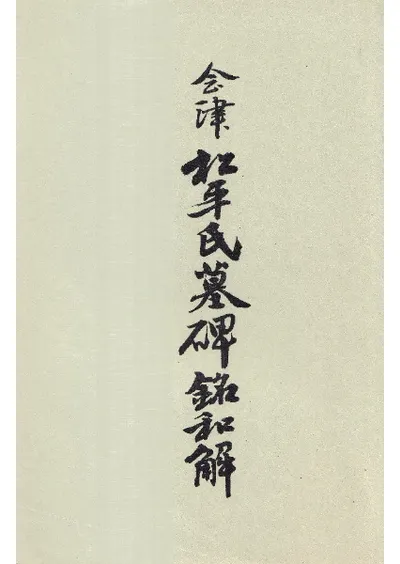 会津 松平氏墓碑銘和解